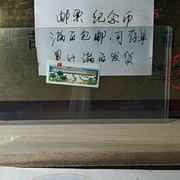 邮票 纪念币
满百包邮.可存单
累计满百发货